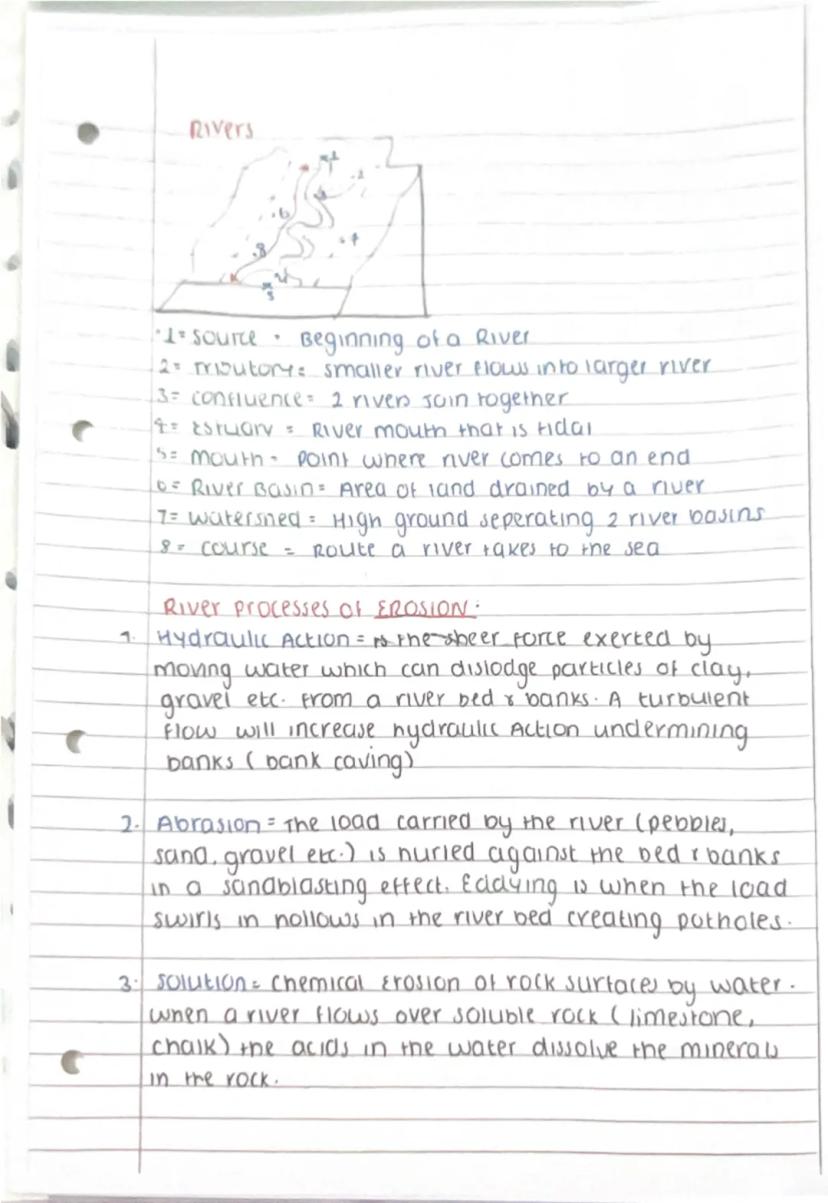 Rivers
1
2
3
6
7
8
4
5
1= Source · Beginning of a River
2= Tributory= smaller river flows into larger river
3= confluence= 2 rivers join together
4= Estuary = River mouth that is tidal
5= mouth = point where river comes to an end
6= River Basin= Area of land drained by a river
7= watershed = High ground seperating 2 river basins
8= course = Route a river takes to the sea
River processes of EROSION:
1. Hydraulic Action = is the sheer force exerted by
moving water which can dislodge particles of clay,
gravel etc. from a river bed & banks. A turbulent
flow will increase hydraulic Action undermining
banks (bank caving)
2. Abrasion = The load carried by the river (pebbles,
sand, gravel etc.) is hurled against the bed & banks
in a sandblasting effect. Eddying is when the load
swirls in hollows in the river bed creating potholes.
3. Solution= Chemical Erosion of rock surfaces by water.
when a river flows over soluble rock (limestone,
chalk) the acids in the water dissolve the minerals
in the rock.